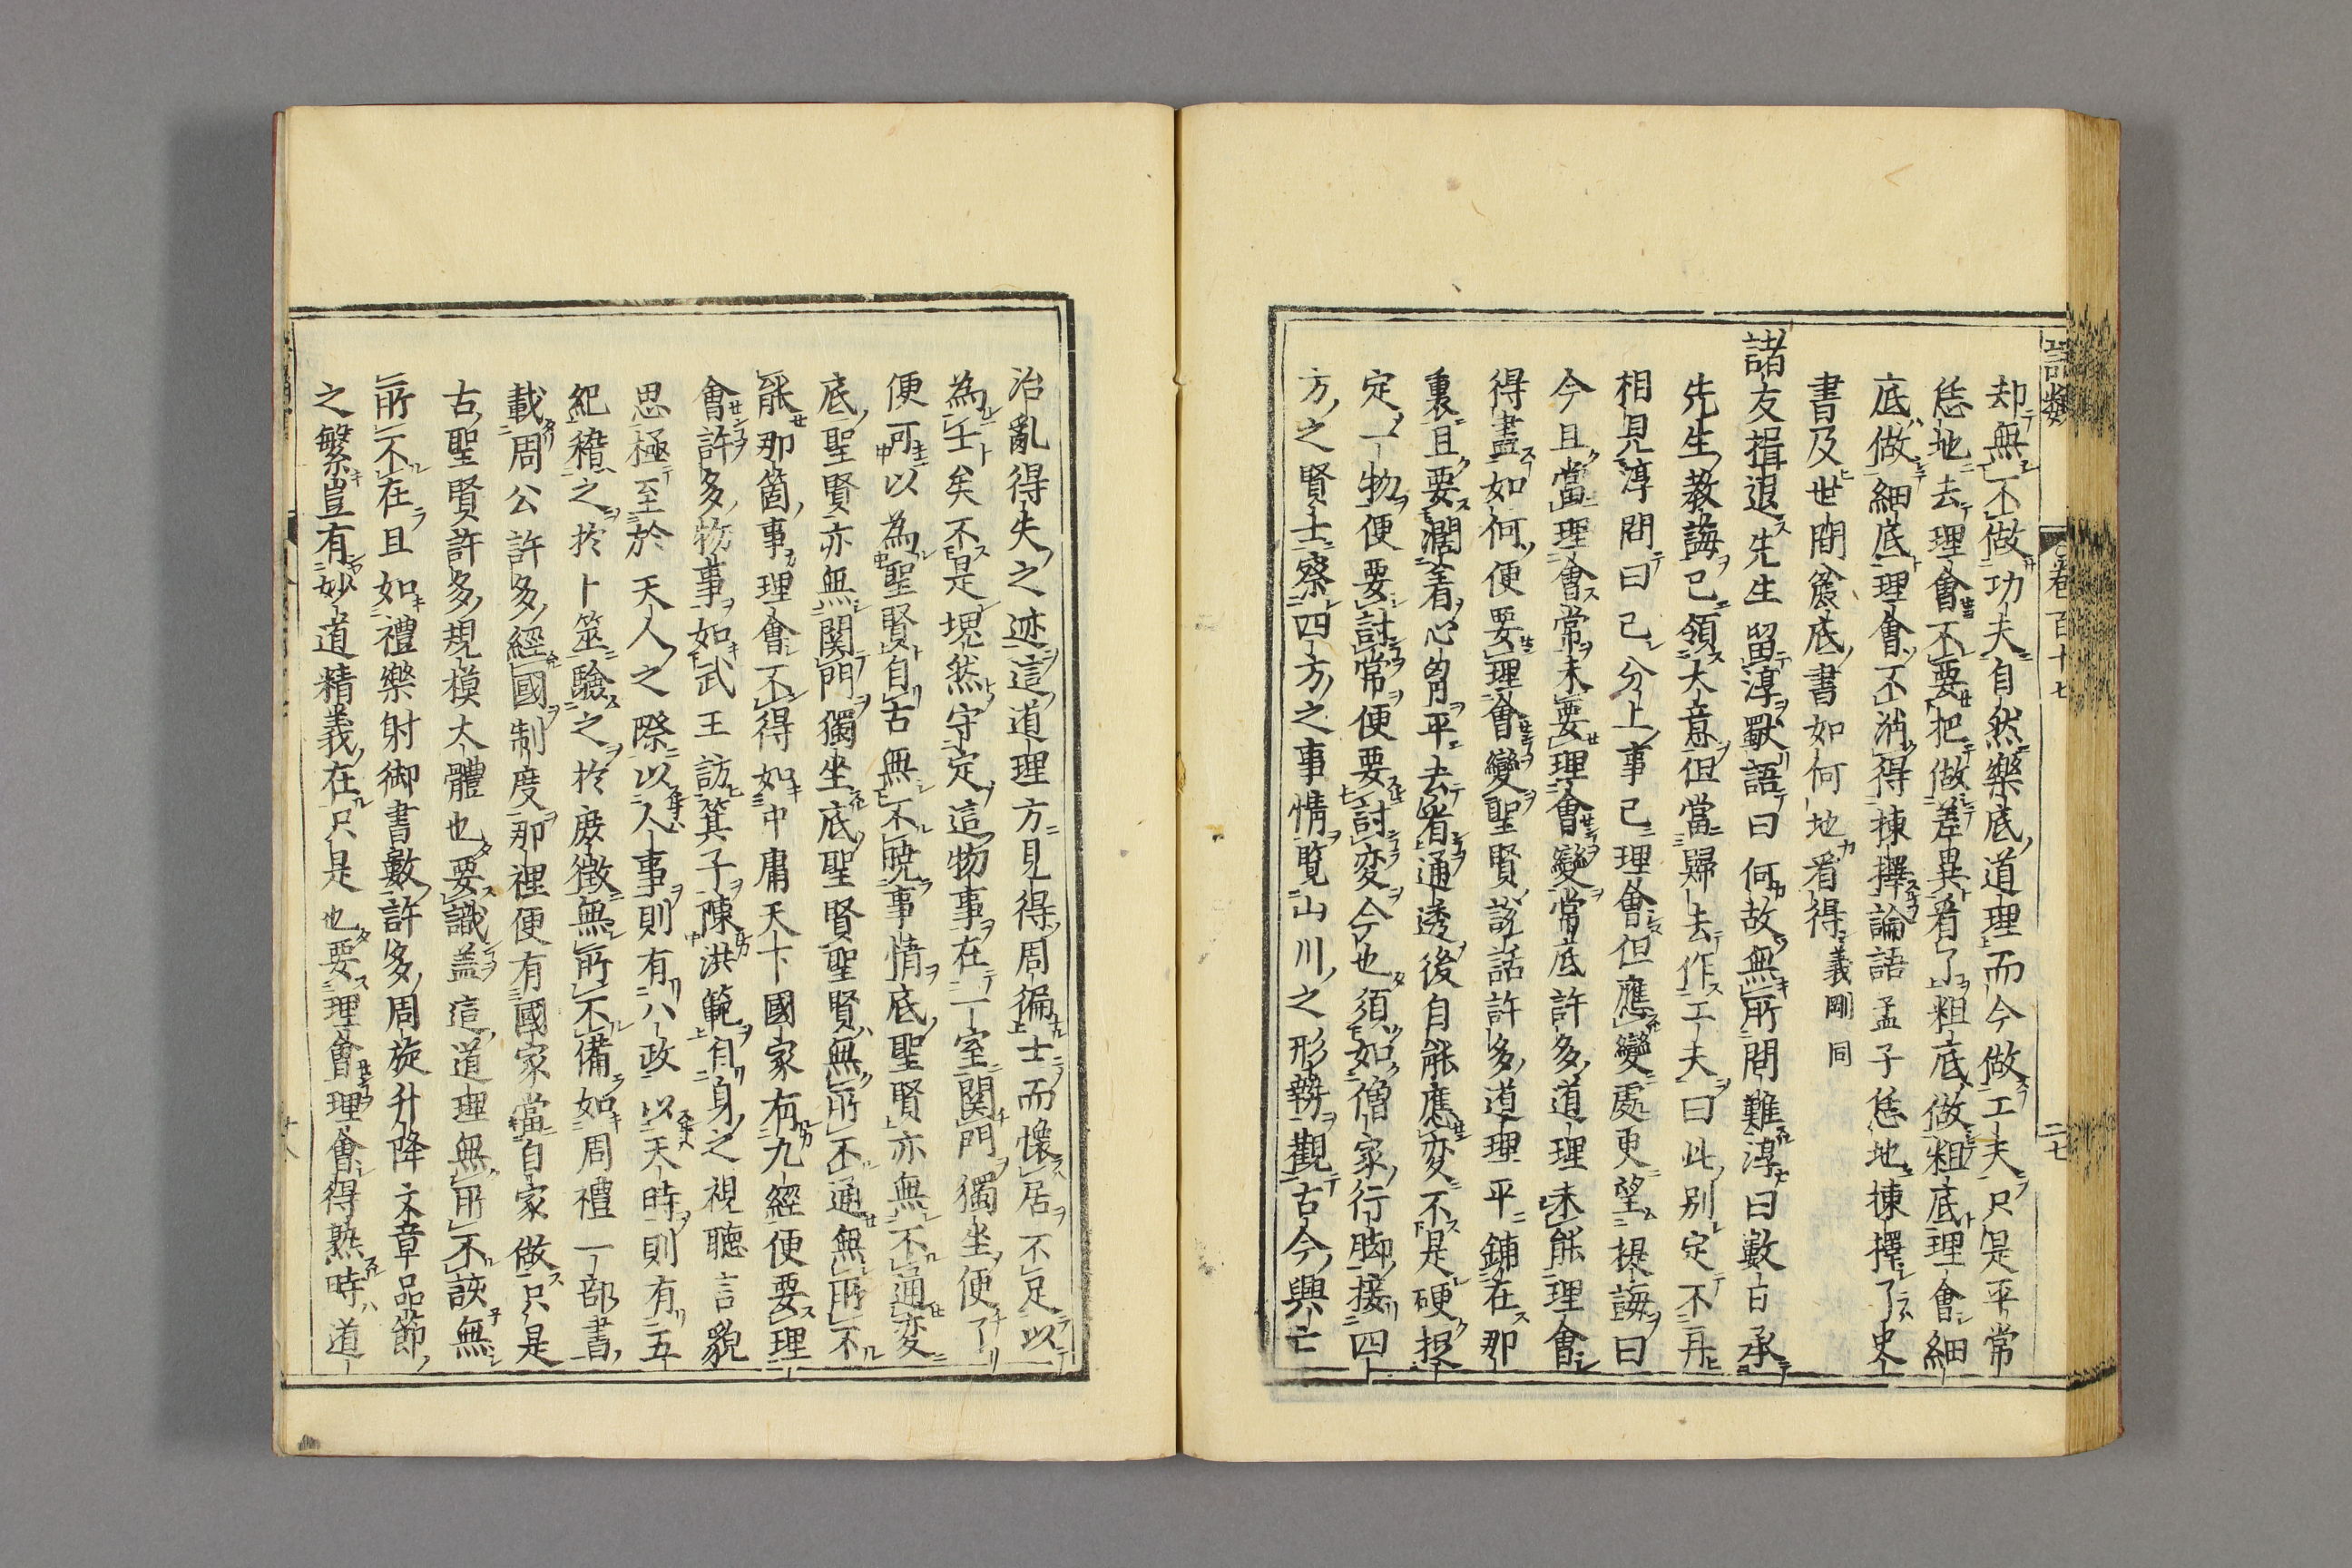 語類
卷百十七
二七
却無不做功夫自然樂底道理而今做工夫只是平常
恁地去理會不要把做差異看了粗底做粗底理會細
底做細底理會不消得揀擇論語孟子恁地揀擇了史
書及世間麄底書如何地看得義剛同
諸友揖退先生留淳獻語曰何故無所問難淳曰數日承
先生教誨已領大意但當歸去作工夫曰此別定不再
相見淳問曰己分上事已理會但應變處更望提誨曰
今且當理會常未要理會變常底許多道理未能理會
得盡如何便要理會變聖賢說話許多道理平鋪在那
裏且要濶着心胷平去看通透後自能應変不是硬捉
定一物便要討常便要討変今也須如僧家行脚接四
方之賢士察四方之事情覽山川之形勢觀古今興亡
治亂得失之迹這道理方見得周徧士而懷居不足以
為士矣不是塊然守定這物事在一室関門獨坐便了
便可以為聖賢自古無不暁事情底聖賢亦無不通変
底聖賢亦無関門獨坐底聖賢聖賢無所不通無所不
能那箇事理會不得如中庸天下國家有九經便要理
會許多物事如武王訪箕子陳洪範自身之視聽言貌
思極至於天人之際以人事則有八政以天時則有五
紀稽之於卜筮驗之於庶徴無所不備如周禮一部書
載周公許多經國制度那裡便有國家當自家做只是
古聖賢許多規模大體也要識盖這道理無所不該無
所不在且如禮樂射御書數許多周旋升降文章品節
之繁豈有妙道精義在只是也要理會理會得熟時道